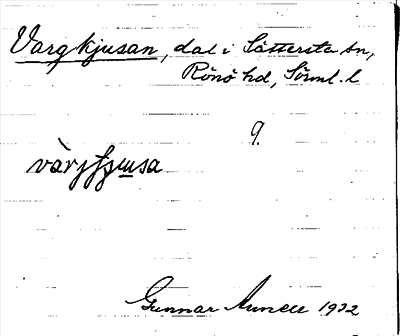 Vargkjusan, dal i Sättersta sn,
Rönö hd, Söml. l
9.
Gunnar Annell 1932